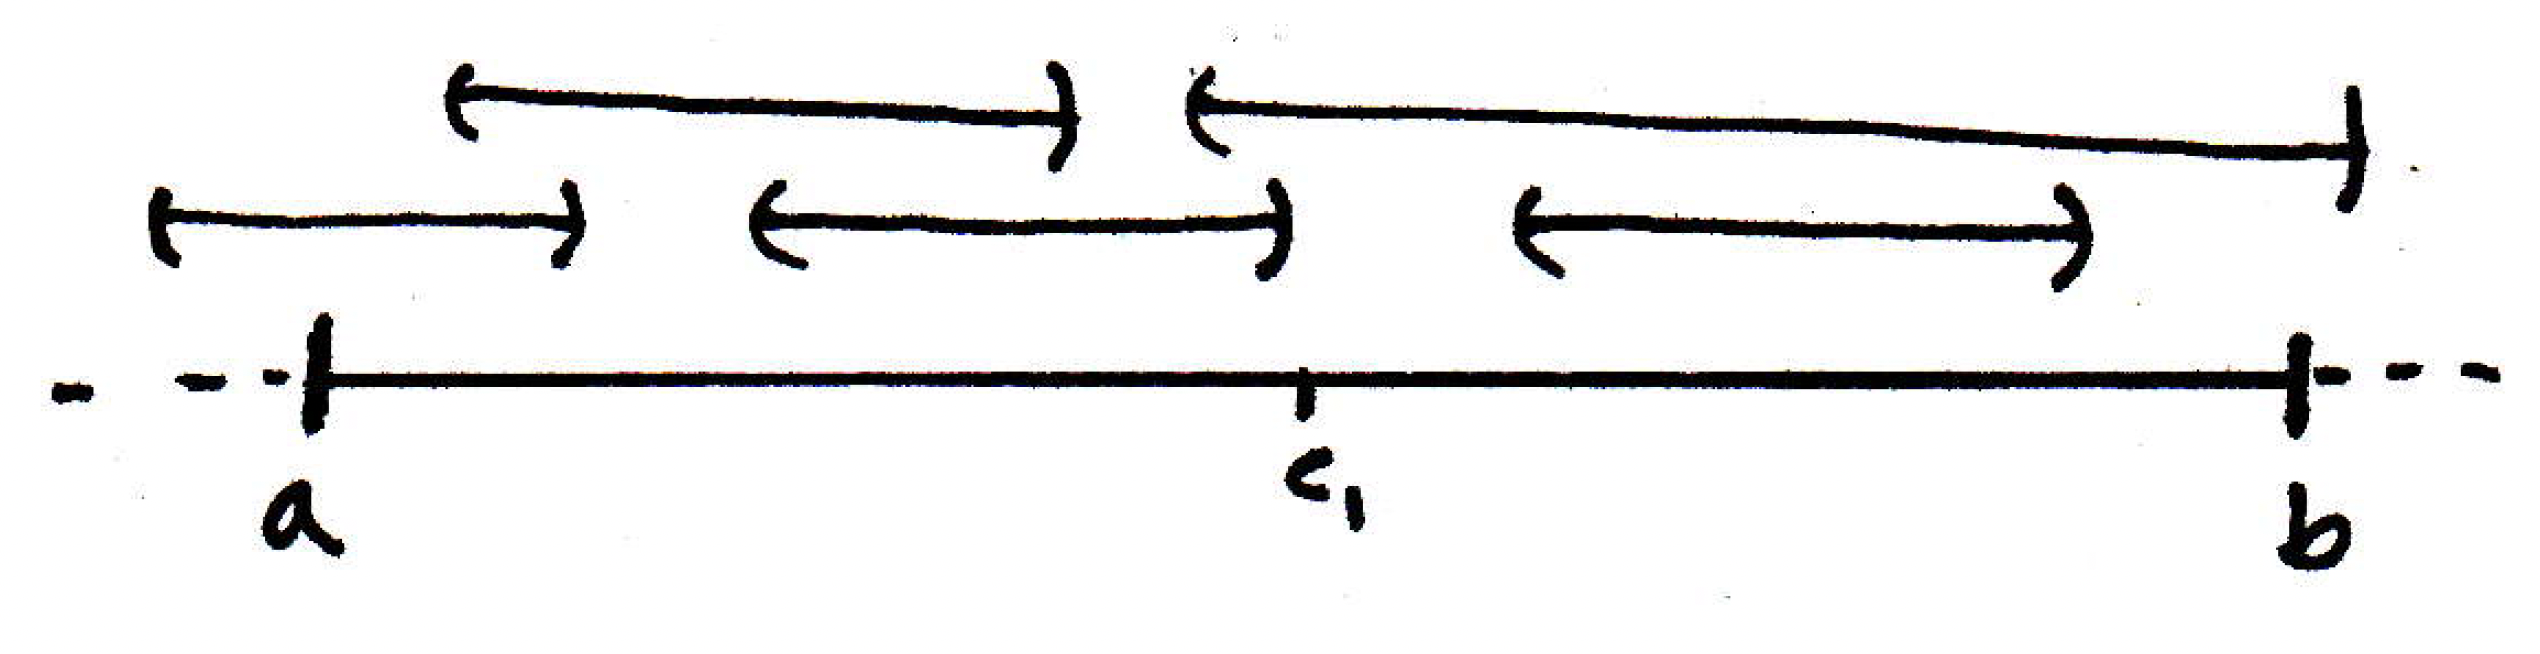 a c₁ b